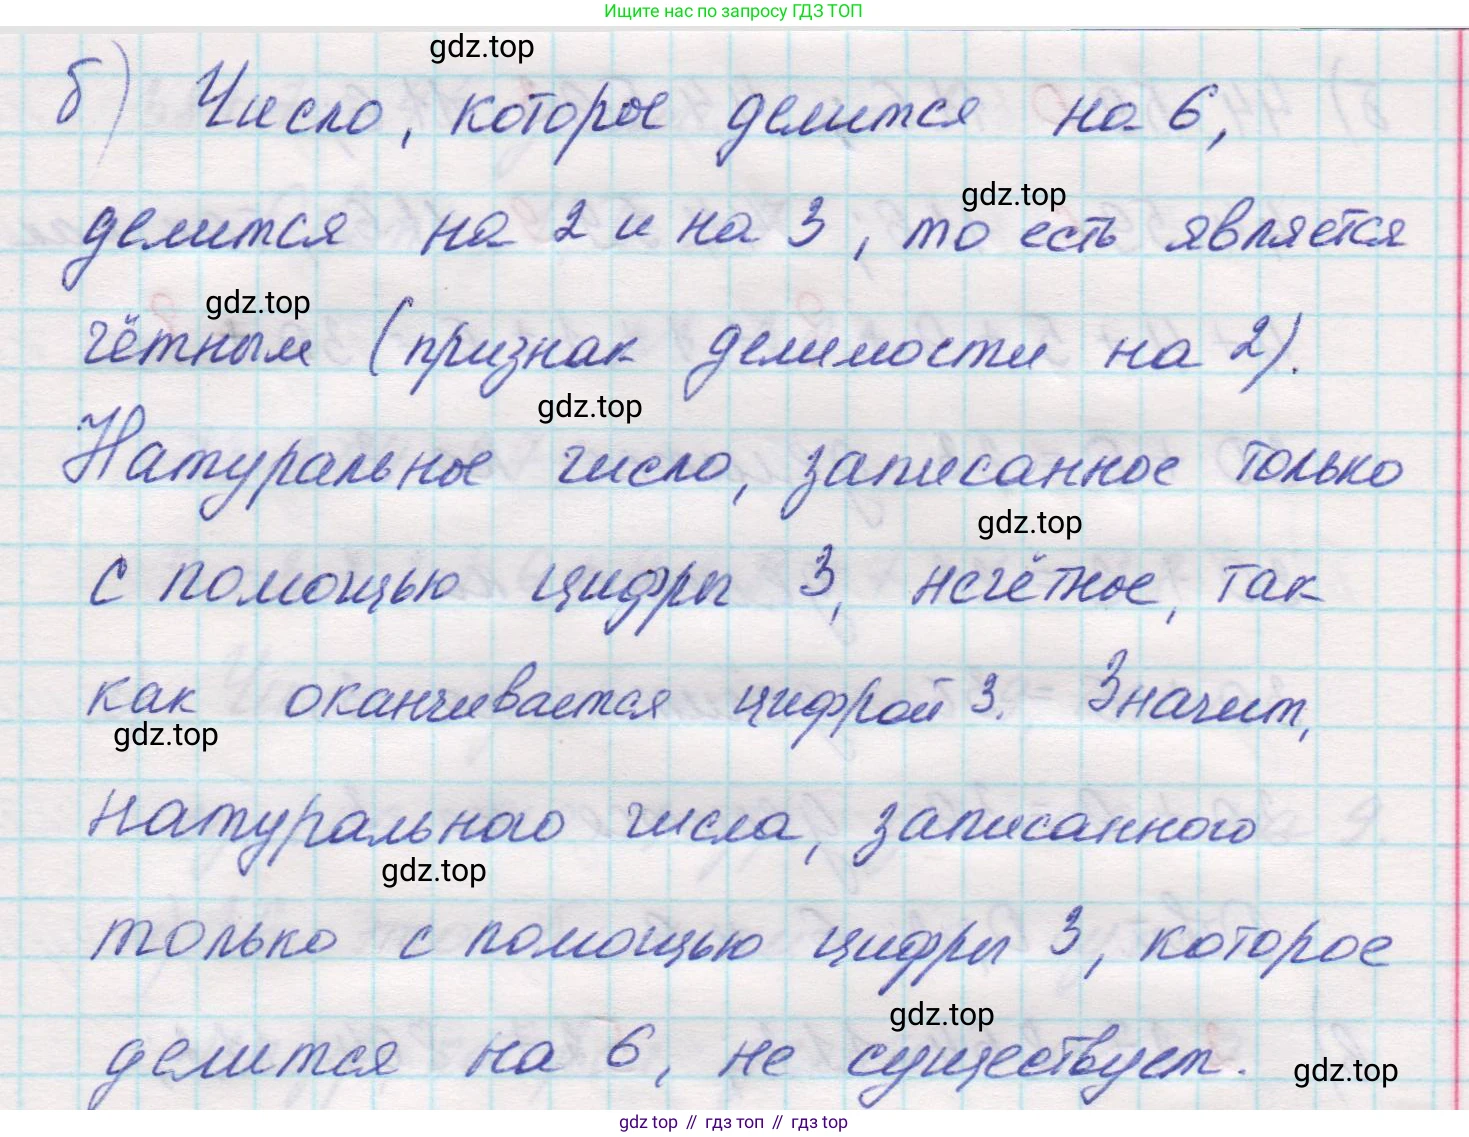 Ищите нас по запросу ГДЗ ТОП
gdz.top
б) Число, которое делится на 6,
gdz.top
делится на 2 и на 3, то есть является
gdz.top
чётным (признак делимости на 2).
gdz.top
Натуральное число, записанное только
gdz.top
с помощью цифры 3, нечётное, так
как оканчивается цифрой 3. Значит,
gdz.top
натурального числа, записанного
gdz.top
только с помощью цифры 3, которое
gdz.top
делится на 6, не существует.
gdz.top
gdz top // гдз топ // gdz top